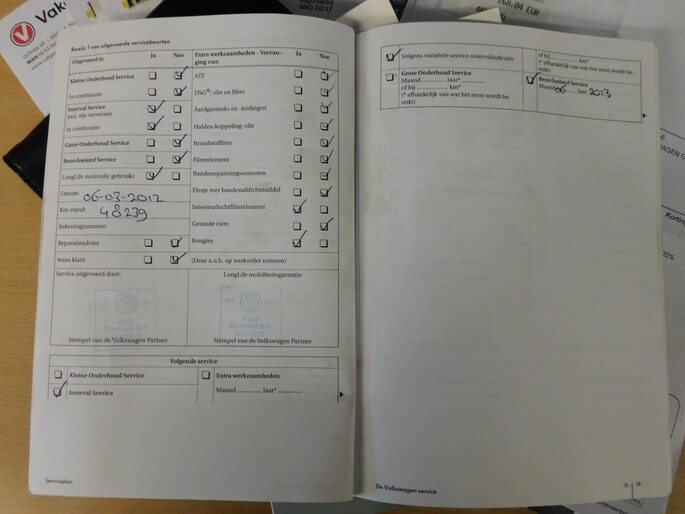 Vak
268,04 EUR
Bewijs 1 van uitgevoerde servicebeurten
Uitgevoerd in Ja Nee
Kleine Onderhoud Service
In combinatie
Interval Service
incl. olie verversen
In combinatie
Grote Onderhoud Service
Remvloeistof Service
LongLife motorolie gebruikt
Datum: 06-03-2012
Km-stand: 48239
Rekeningnummer:
Reparatieadvies
Wens klant
Extra werkzaamheden - Vervan- Ja Nee
ging van:
ATF
DSG®: olie en filter
Aardgastanks en -leidingen
Haldex-koppeling: olie
Brandstoffilter
Filterelement
Bandenspanningsensoren
Flesje met bandenafdichtmiddel
Interieurluchtfilterelement
Getande riem
Bougies
(Deze a.u.b. op werkorder noteren)
Service uitgevoerd door:
LongLife mobiliteitsgarantie:
Stempel van de Volkswagen Partner
Stempel van de Volkswagen Partner
Volgende service
Kleine Onderhoud Service
Interval Service
Extra werkzaamheden
Maand ............ Jaar* ............
Serviceplan
Volgens variabele service-intervalindicatie
of bij ............ km*
(* afhankelijk van wat het eerst wordt be-
reikt)
Grote Onderhoud Service
Maand ............ Jaar* ............
of bij ............ km*
(* afhankelijk van wat het eerst wordt be-
reikt)
Remvloeistof Service
Maand 06 Jaar 2013
De Volkswagen-service
Korting